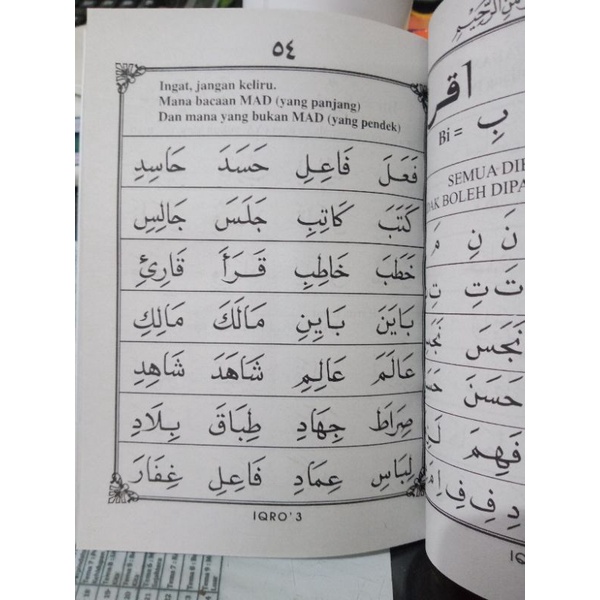 ٥٤
Ingat, jangan keliru.
Mana bacaan MAD (yang panjang)
Dan mana yang bukan MAD (yang pendek)
فَعَلَ فَاعِلِ حَسَدَ حَاسِدِ
كَتَبَ كَاتِبِ جَلَسَ جَالِسِ
خَطَبَ خَاطِبِ قَرَأَ قَارِئِ
بَايَنَ بَايِنِ مَالَكَ مَالِكِ
عَالَمَ عَالِمِ شَاهَدَ شَاهِدِ
صِرَاطَ جِهَادِ طِبَاقَ بِلَادِ
لِبَاسِ عِمَادِ فَاعِلِ غِفَارَ
IQRO' 3
بِ
Bi =
SEMUA
BOLEH
نَ نِ
تَ تِ
نَجَسَ
حَسَنَ
فَهِمَ
دِ فِ فِ